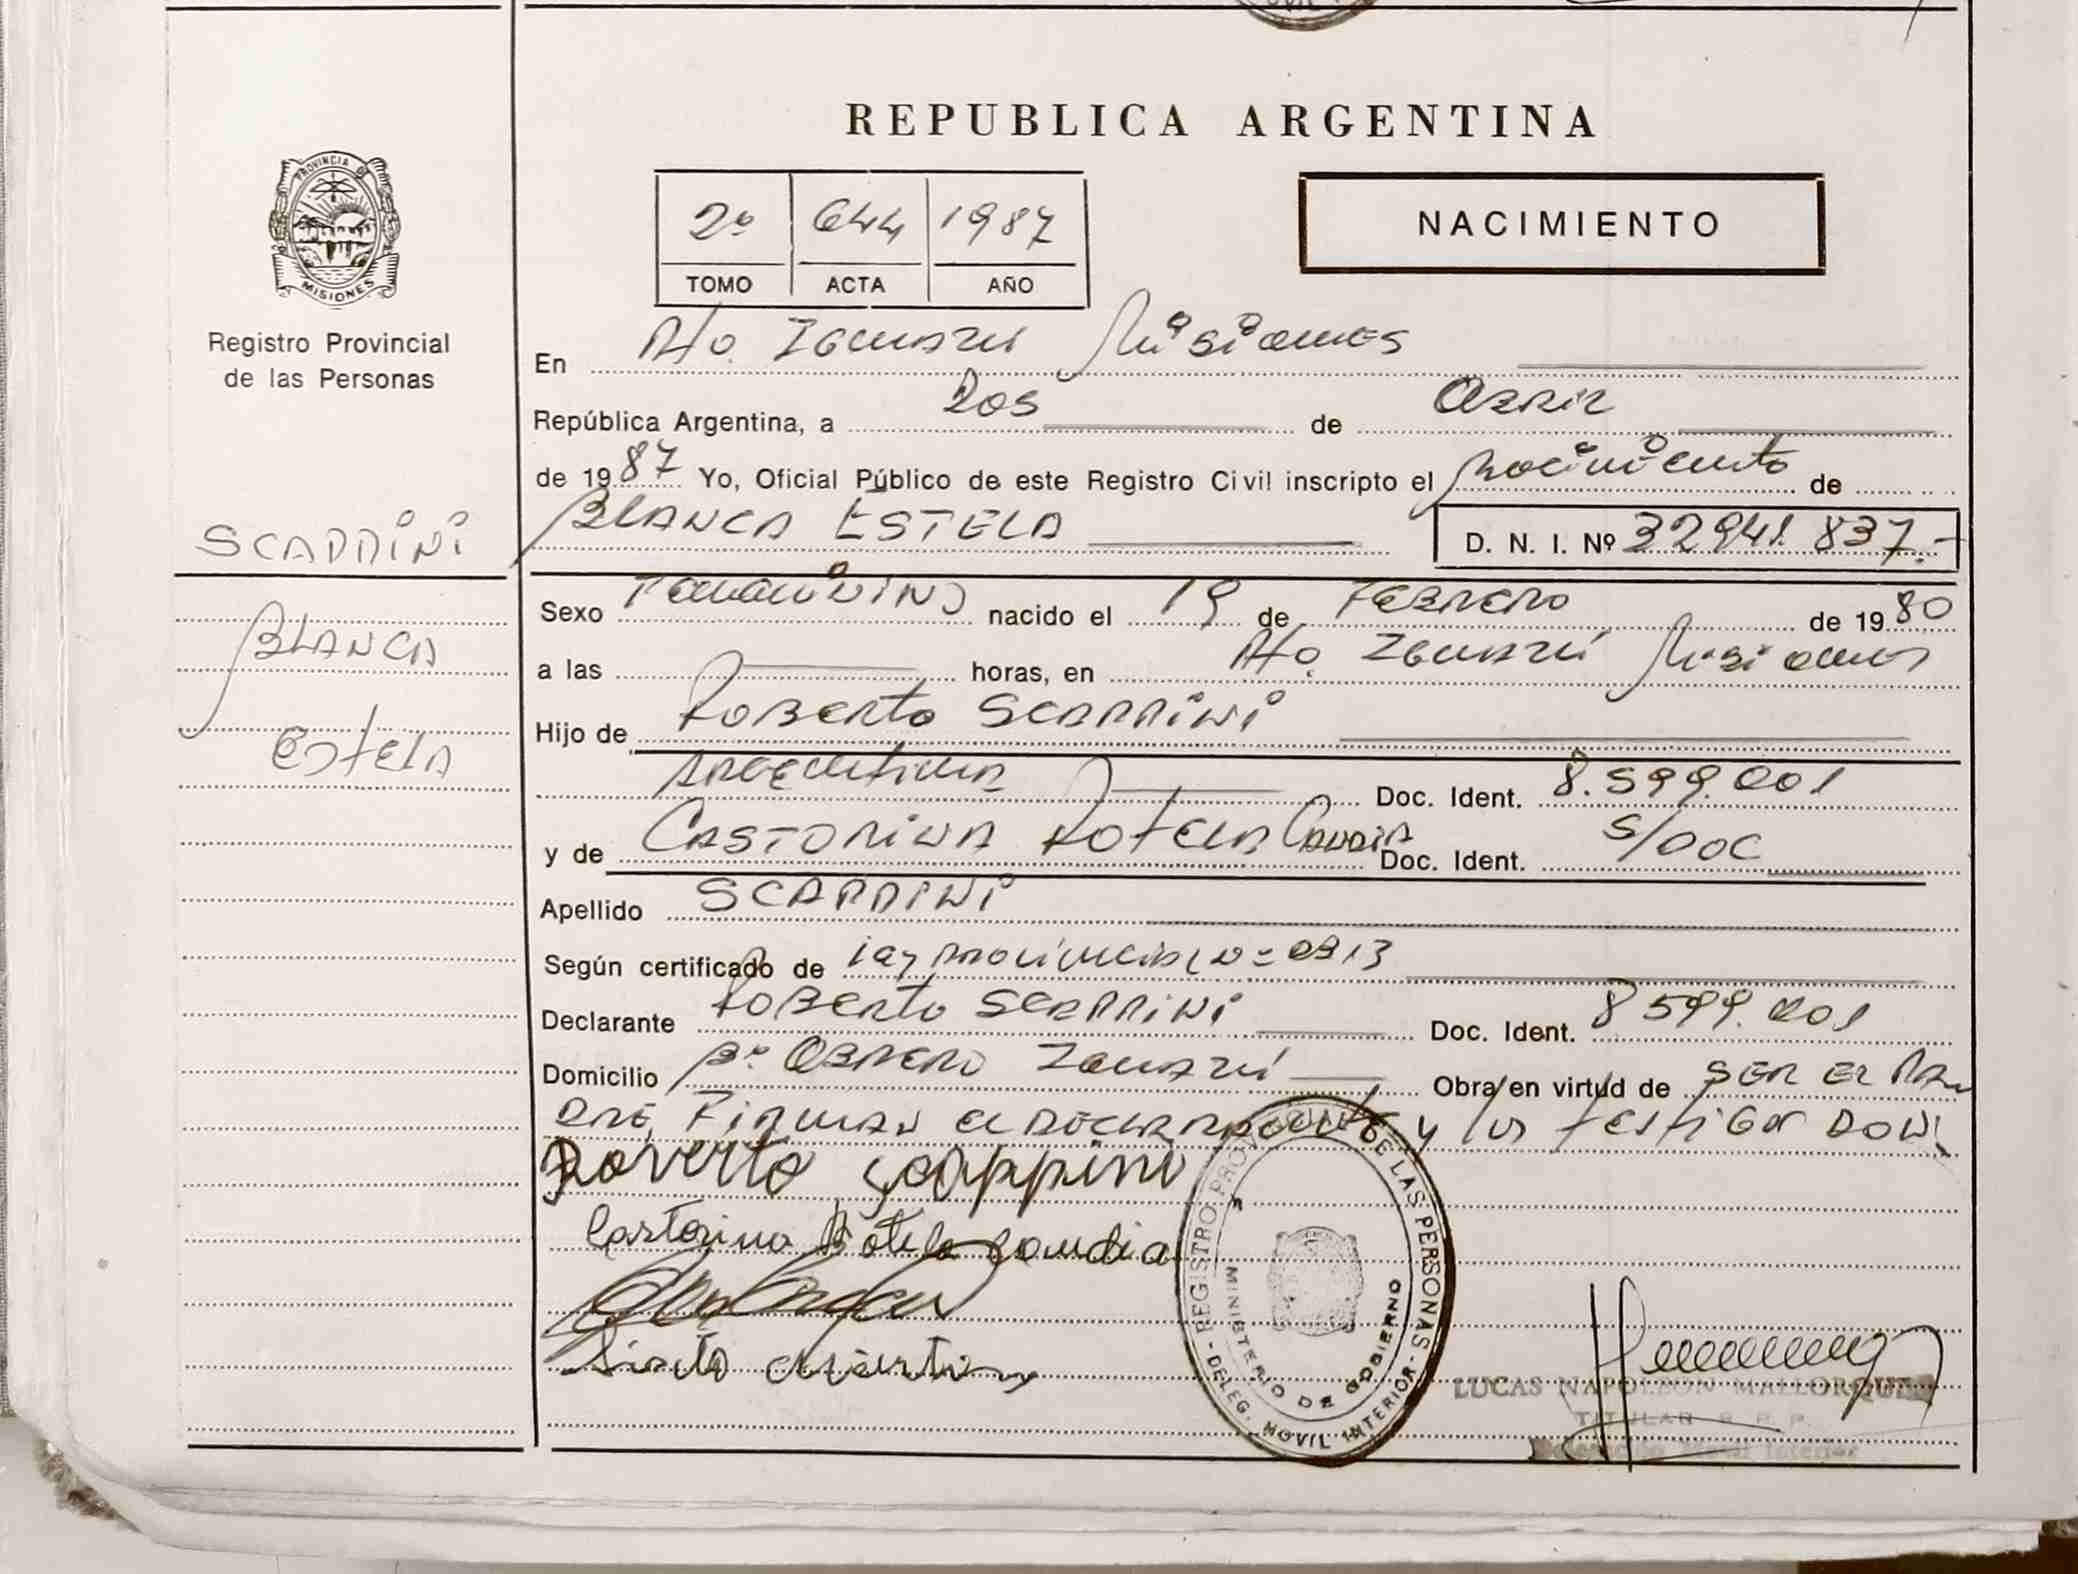 REPUBLICA ARGENTINA
PROVINCIA DE MISIONES
Registro Provincial
de las Personas
2º 644 1987
TOMO ACTA AÑO
NACIMIENTO
En Pto. Iguazú Misiones
República Argentina, a Dos de Abril
de 1987 Yo, Oficial Público de este Registro Civil inscripto el Nacimiento de
BLANCA ESTELA
D. N. I. Nº 32941.837.-
SCAPPINI
BLANCA
Estela
Sexo Femenino nacido el 19 de Febrero de 1980
a las horas, en Pto. Iguazú Misiones
Hijo de Roberto SCAPPINI
Argentina Doc. Ident. 8.599.001
y de CASTORINA ROTELA Candia Doc. Ident. S/DOC
Apellido SCAPPINI
Según certificado de Ley provincial Nº 0913
Declarante Roberto SCAPPINI Doc. Ident. 8599.001
Domicilio Bº OBRERO Iguazú Obra en virtud de SER EL PA
DRE, Firman el declarante y los testigos DON
Roverto Scappini
Castorina Rotela candia
REGISTRO PROVINCIAL DE LAS PERSONAS
MINISTERIO DE GOBIERNO
DELEG. MOVIL INTERIOR
LUCAS NAPOLEON MALLORQUIN
TITULAR R. P. P.
Delegación Movil Interior